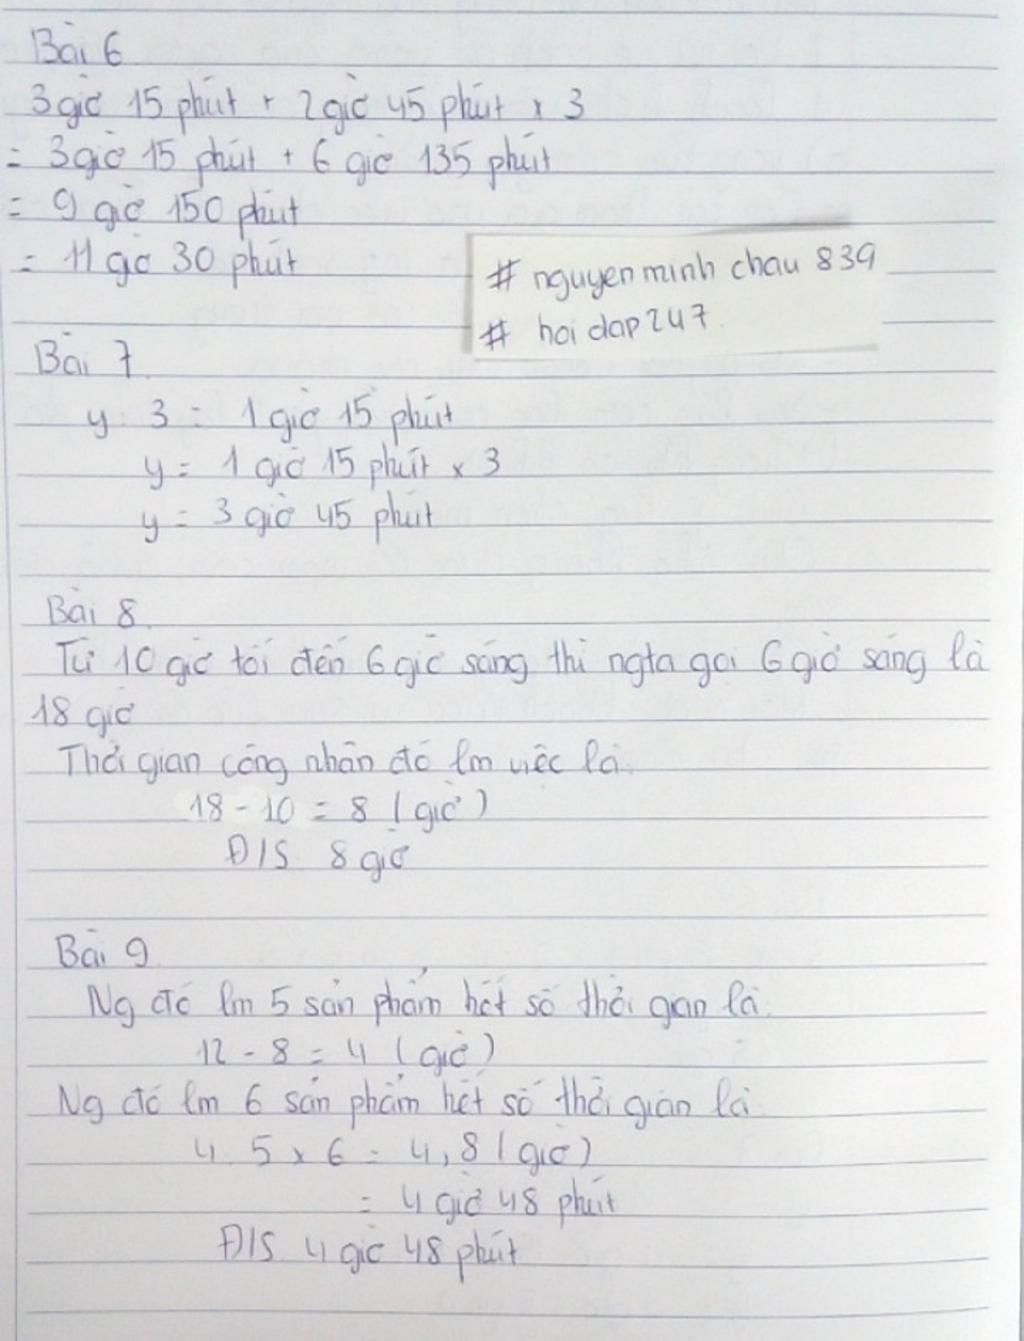 Bài 6
3 giờ 15 phút + 2 giờ 45 phút x 3
= 3 giờ 15 phút + 6 giờ 135 phút
= 9 giờ 150 phút
= 11 giờ 30 phút
# nguyenminh chau 839
# hoi dap 247
Bài 7
y : 3 = 1 giờ 15 phút
y = 1 giờ 15 phút x 3
y = 3 giờ 45 phút
Bài 8
Từ 10 giờ tối đến 6 giờ sáng thì ngta gọi 6 giờ sáng là
18 giờ
Thời gian công nhân đó lm việc là:
18 - 10 = 8 (giờ)
Đ/S: 8 giờ
Bài 9
Ng đó lm 5 sản phẩm hết số thời gian là:
12 - 8 = 4 (giờ)
Ng đó lm 6 sản phẩm hết số thời gian là:
4 : 5 x 6 = 4,8 (giờ)
= 4 giờ 48 phút
Đ/S: 4 giờ 48 phút